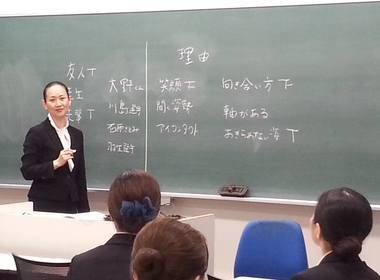 理由
友人T
大野くん
笑顔T
向き合い方T
川島選手
聞く姿勢
軸がある
石原さとみ
アイコンタクト
あきらめない姿T
羽生選手